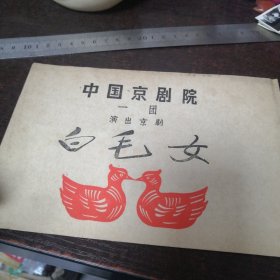 中国京剧院
一团
演出京剧
白毛女